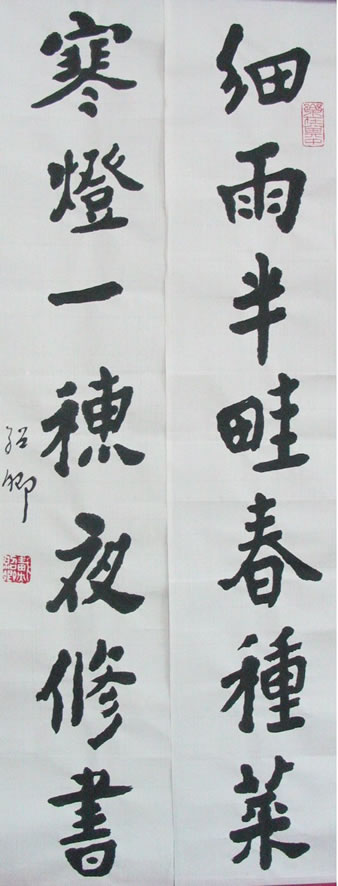 细雨半畦春種菜
寒燈一穗夜修書
紹卿